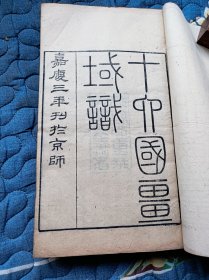 十六國畺
域識
嘉慶三年刊於京師